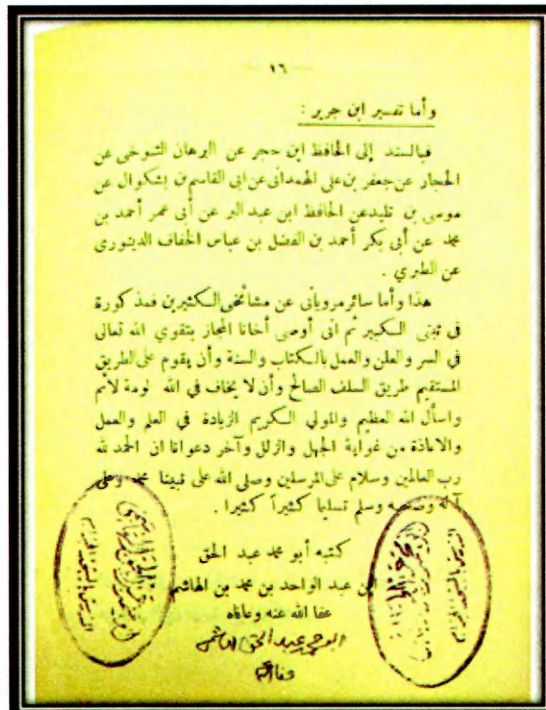 — ١٦ —
وأما تفسير ابن جرير :
فبالسند إلى الحافظ ابن حجر عن البرهان التنوخى عن
الحجار عن جعفر بن على الهمدانى عن ابى القاسم بن بشكوال عن
موسى بن تليد عن الحافظ ابن عبد البر عن أبى عمر أحمد بن
محمد عن أبى بكر أحمد بن الفضل بن عباس الخفاف الدينورى
عن الطبرى .
هذا وأما سائر مروياتى عن مشائخى الكثيرين فمذكورة
فى ثبتى الكبير ثم انى أوصى أخانا المجاز بتقوى الله تعالى
في السر والعلن والعمل بالكتاب والسنة وأن يقوم على الطريق
المستقيم طريق السلف الصالح وأن لا يخاف في الله لومة لائم
واسأل الله العظيم والمولي الكريم الزيادة في العلم والعمل
والاعاذة من غواية الجهل والزلل وآخر دعوانا ان الحمد لله
رب العالمين وسلام على المرسلين وصلى الله على نبينا محمد وعلى
آله وصحبه وسلم تسليما كثيراً كثيرا .
كتبه أبو محمد عبد الحق
ابن عبد الواحد بن محمد بن الهاشم
عفا الله عنه وعافاه
ابو محمد عبد الحق الهاشمي